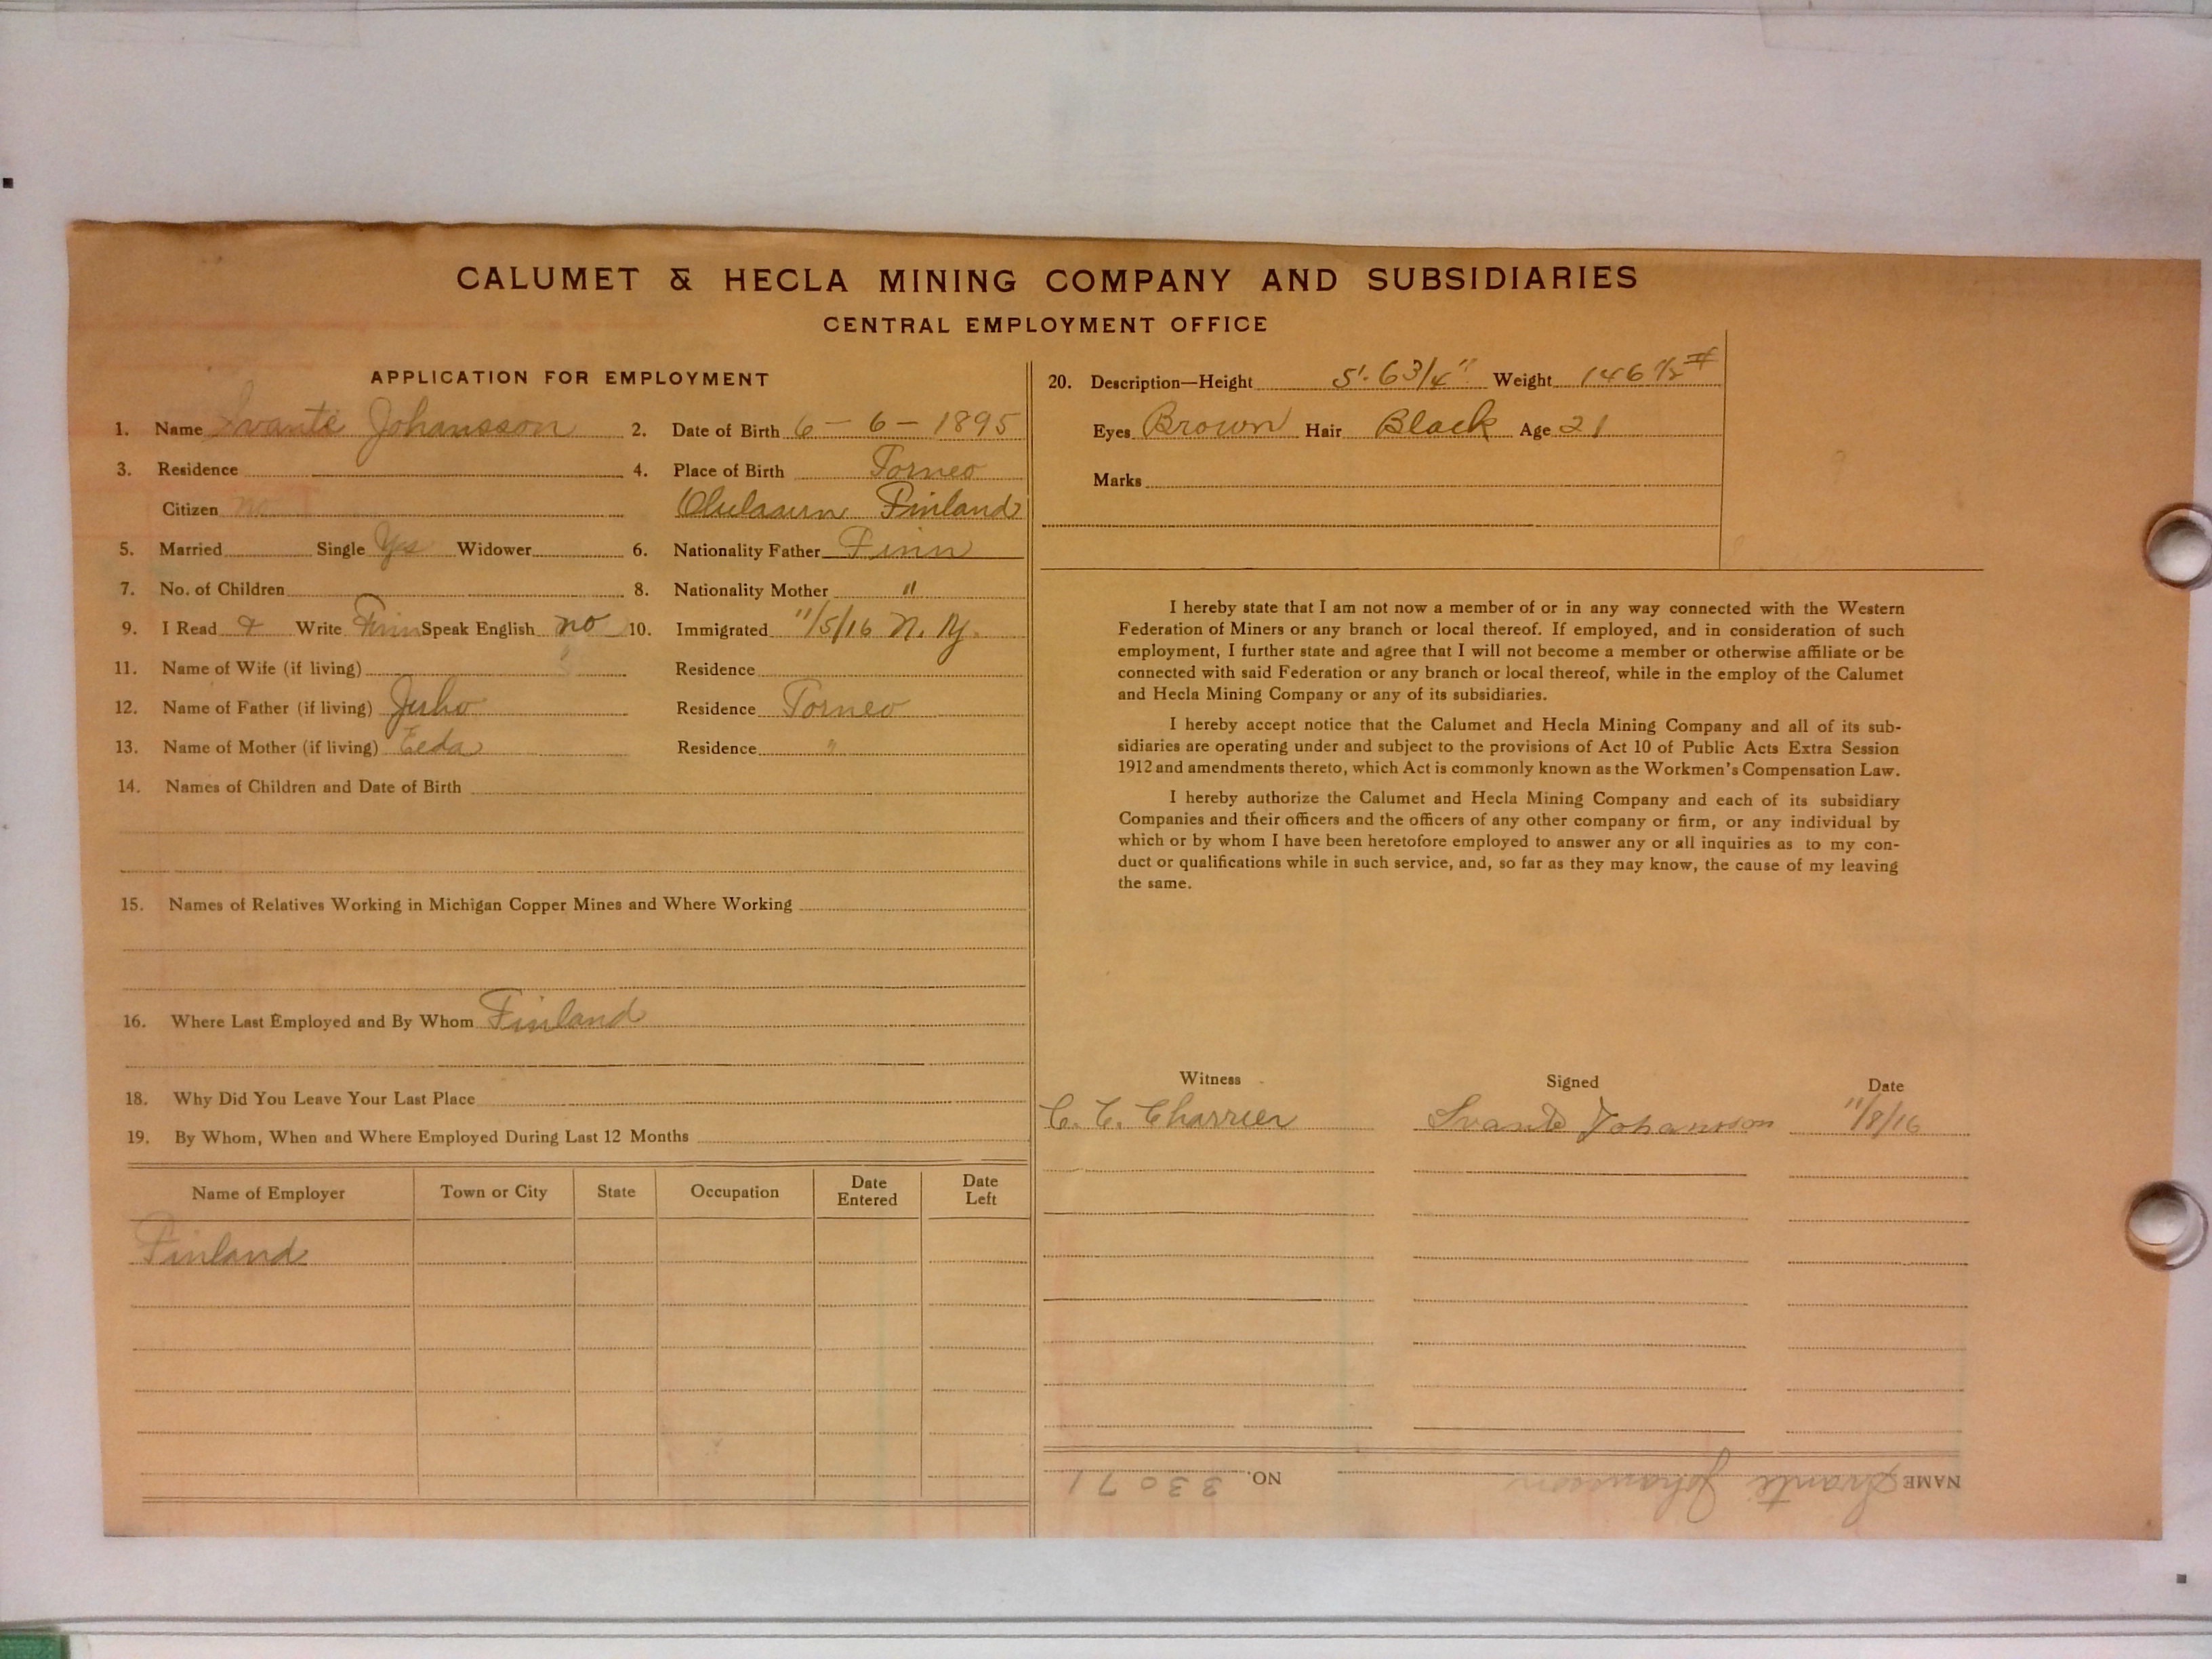 CALUMET & HECLA MINING COMPANY AND SUBSIDIARIES
CENTRAL EMPLOYMENT OFFICE
APPLICATION FOR EMPLOYMENT
1. Name Svante Johansson 2. Date of Birth 6 - 6 - 1895
3. Residence 4. Place of Birth Torneo
Citizen no Finland
5. Married Single Yes Widower 6. Nationality Father Finn
7. No. of Children 8. Nationality Mother "
9. I Read & Write Finn Speak English no 10. Immigrated 11/5/16 N. Y.
11. Name of Wife (if living) Residence
12. Name of Father (if living) Juho Residence Torneo
13. Name of Mother (if living) Eeda Residence "
14. Names of Children and Date of Birth
15. Names of Relatives Working in Michigan Copper Mines and Where Working
16. Where Last Employed and By Whom Finland
18. Why Did You Leave Your Last Place
19. By Whom, When and Where Employed During Last 12 Months
Name of Employer Town or City State Occupation Date Entered Date Left
Finland
20. Description—Height 5'. 6 3/4" Weight 146 1/2 #
Eyes Brown Hair Black Age 21
Marks
I hereby state that I am not now a member of or in any way connected with the Western
Federation of Miners or any branch or local thereof. If employed, and in consideration of such
employment, I further state and agree that I will not become a member or otherwise affiliate or be
connected with said Federation or any branch or local thereof, while in the employ of the Calumet
and Hecla Mining Company or any of its subsidiaries.
I hereby accept notice that the Calumet and Hecla Mining Company and all of its sub-
sidiaries are operating under and subject to the provisions of Act 10 of Public Acts Extra Session
1912 and amendments thereto, which Act is commonly known as the Workmen's Compensation Law.
I hereby authorize the Calumet and Hecla Mining Company and each of its subsidiary
Companies and their officers and the officers of any other company or firm, or any individual by
which or by whom I have been heretofore employed to answer any or all inquiries as to my con-
duct or qualifications while in such service, and, so far as they may know, the cause of my leaving
the same.
Witness Signed Date
C. C. Charrier Svante Johansson 11/8/16
NAME Svante Johansson NO. 33071